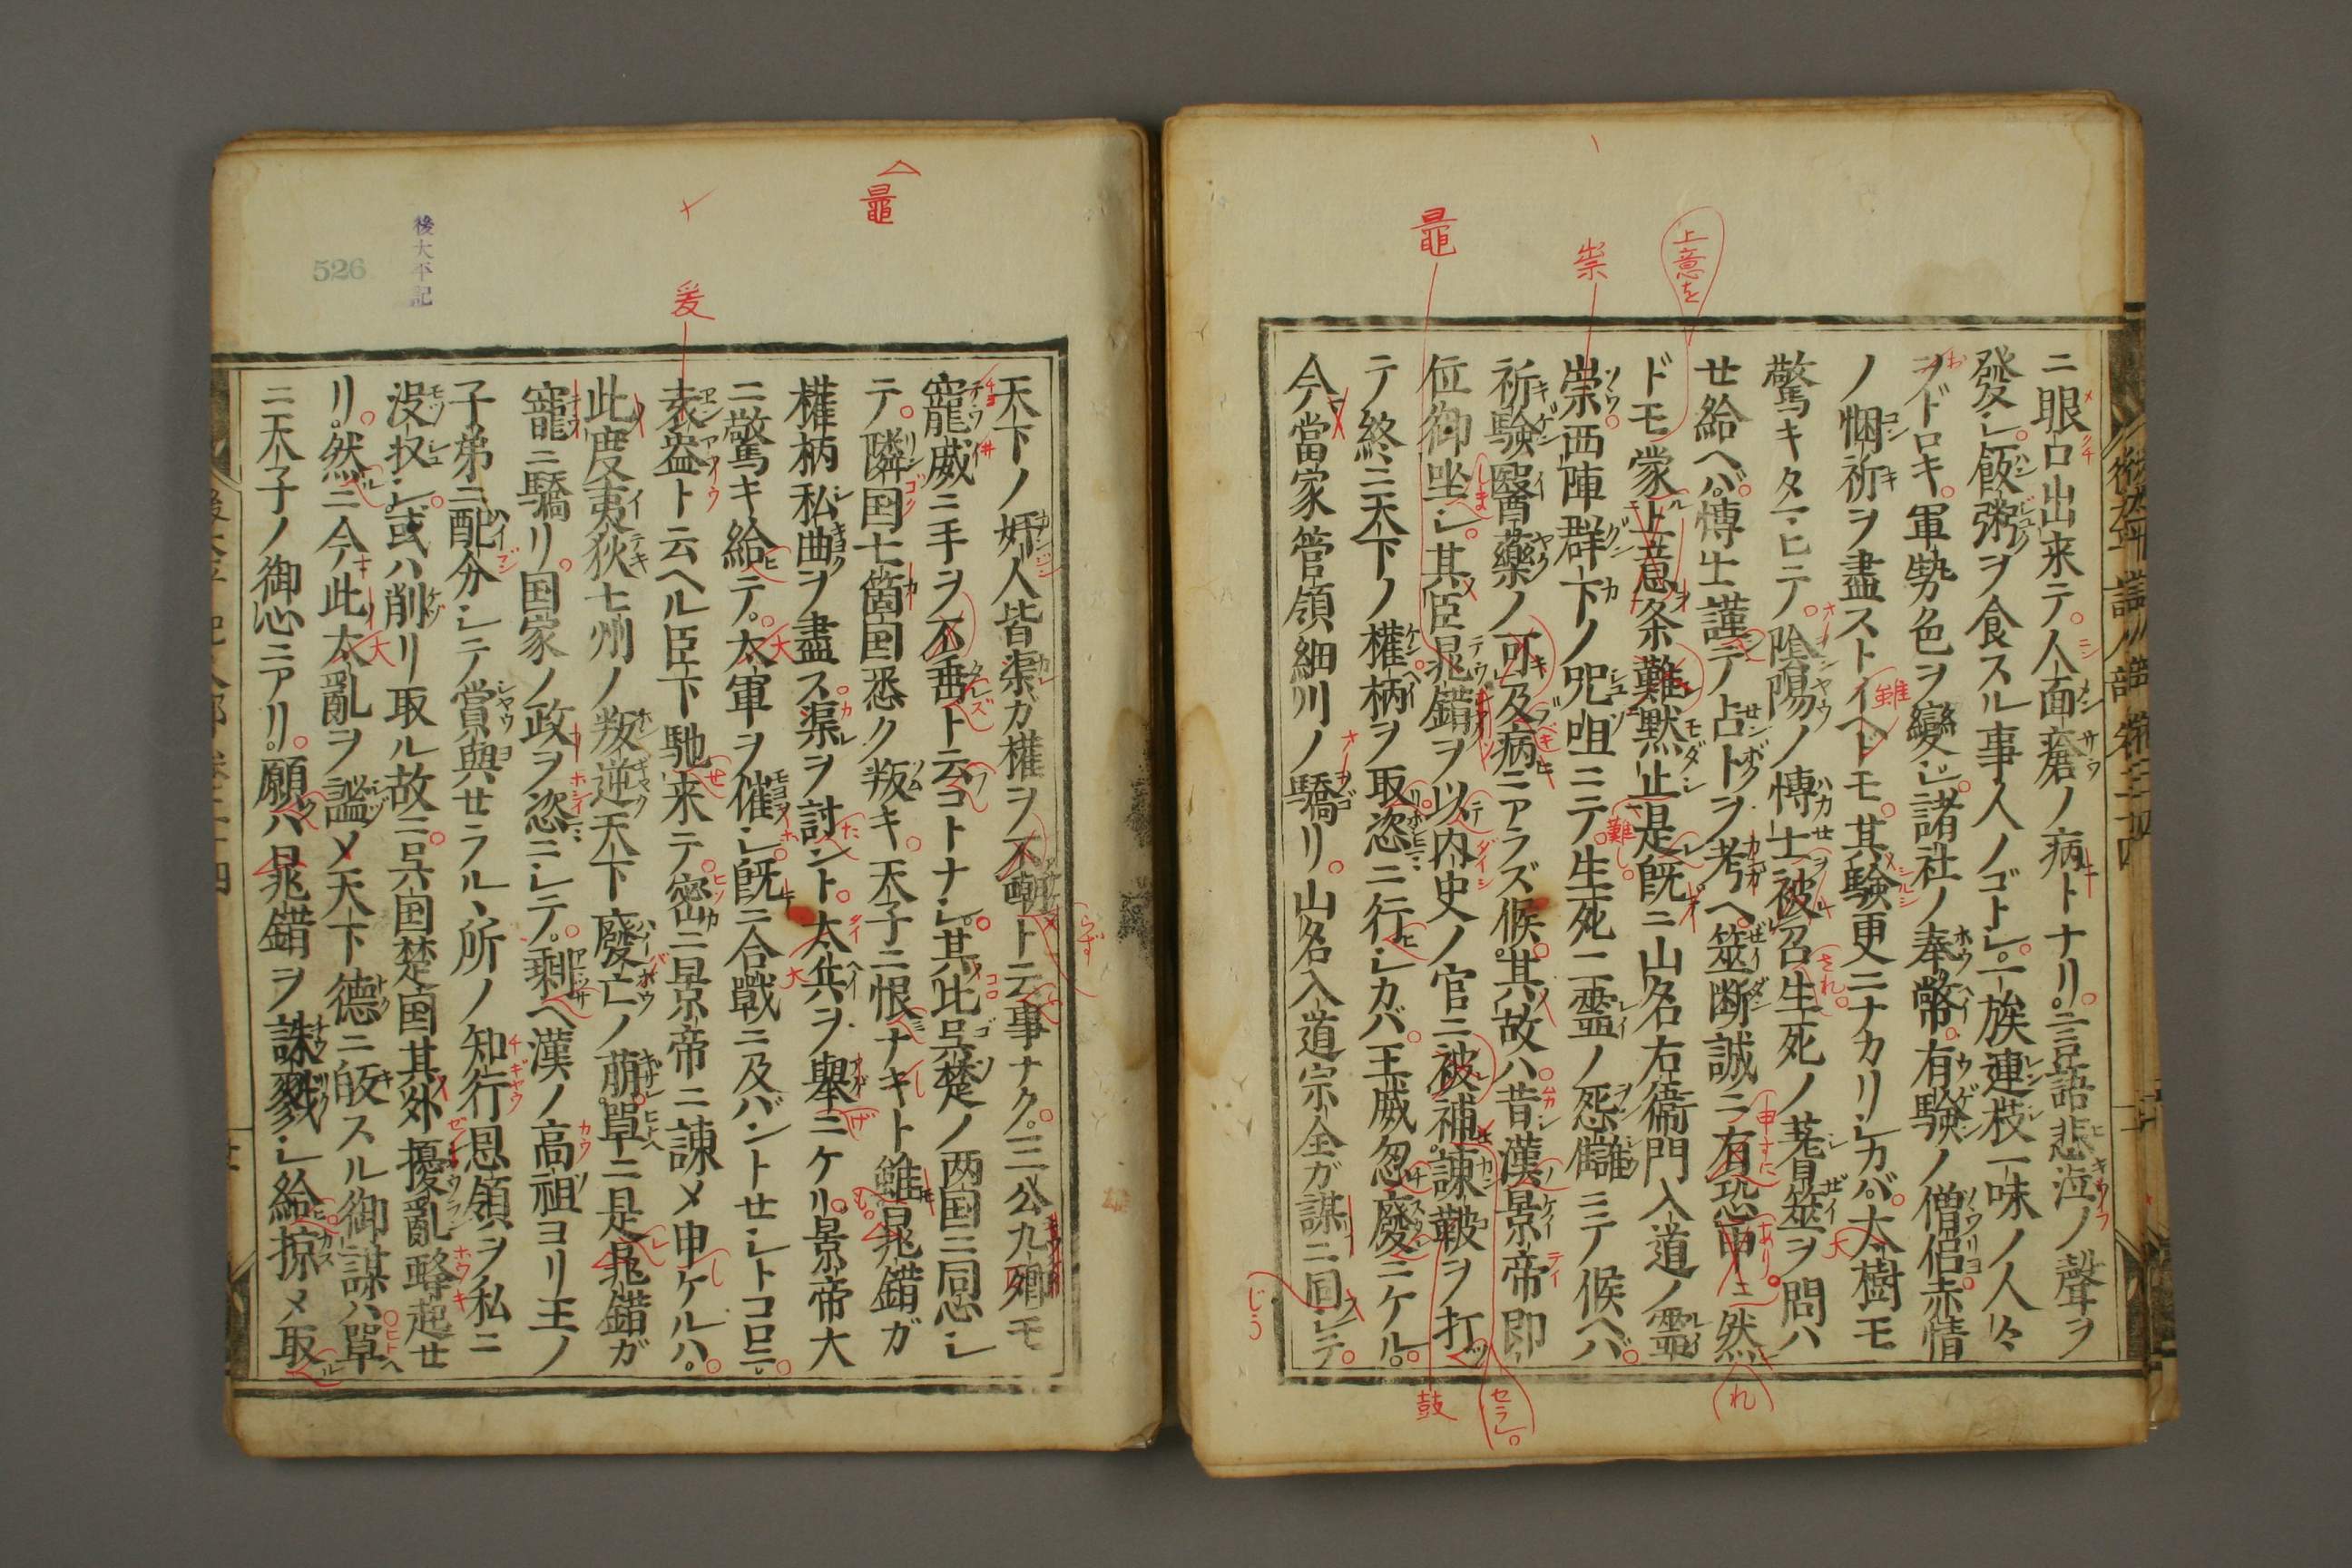 ニ眼口出来テ。人面瘡ノ病トナリ。言語悲泣ノ聲ヲ
發シ飯粥ヲ食スル事人ノゴトシ。一族連枝一味ノ人々
ヲドロキ。軍勢色ヲ變シ。諸社ノ奉幣。有驗ノ僧侶赤情
ノ悃祈ヲ盡ストイヘドモ。其驗更ニナカリシカバ。大樹モ
驚キタマヒテ。陰陽ノ博士被召生死ノ蓍筮ヲ問ハ
せ給ヘバ。博士謹テ占トヲ考ヘ。筮断誠ニ有恐申ニ然
ドモ蒙上意条難黙止是既ニ山名右衞門入道ノ靈
崇西陣群卞ノ咒咀ニテ。生死二靈ノ怨讎ニテノ候ヘバ。
祈驗醫藥ノ可及病ニアラズ候。其故ハ昔漢景帝即
位御坐シ。其臣晁錯ヲ以内史ノ官ニ被補。諫皷ヲ打
テ終ニ天下ノ權柄ヲ取恣ニ行シカバ。王威忽廢ニケル。
今當家管領細川ノ驕リ。山名入道宗全ガ謀ニ同シテ。
鼂
祟
上意を
鼓
セラレ。
れ
じう
天下ノ奸人皆渠ガ權ヲ不嘲ト云事ナク。三公九卿モ
寵威ニ手ヲ不垂ト云コトナシ。其此呉楚ノ两国ニ同心シ
テ。隣国七箇国悉ク叛キ。天子ニ恨ナキト雖晁錯ガ
權柄私曲ヲ盡ス。渠ヲ討ント。大兵ヲ舉ニケリ。景帝大
ニ驚キ給テ。大軍ヲ催シ既ニ合戰ニ及バントせシトコロニ。
袁盎ト云ヘル臣下馳来テ。密ニ景帝ニ諫メ申ケルハ。
此度夷狄七州ノ叛逆天下廢亡ノ萠。單ニ是晁錯ガ
寵ニ驕リ。国家ノ政ヲ恣ニシテ。剰ヘ漢ノ高祖ヨリ王ノ
子弟ニ配分シテ賞與せラルヽ所ノ知行恩領ヲ私ニ
没収シ。或ハ削リ取ル故ニ。呉国楚国其外擾亂蜂起せ
リ。然ニ今此大亂ヲ謐メ天下德ニ皈スル御謀ハ單
ニ天子ノ御心ニアリ。願ハ晁錯ヲ誅戮シ給掠メ取
鼂
爰
らず
後太平記
526